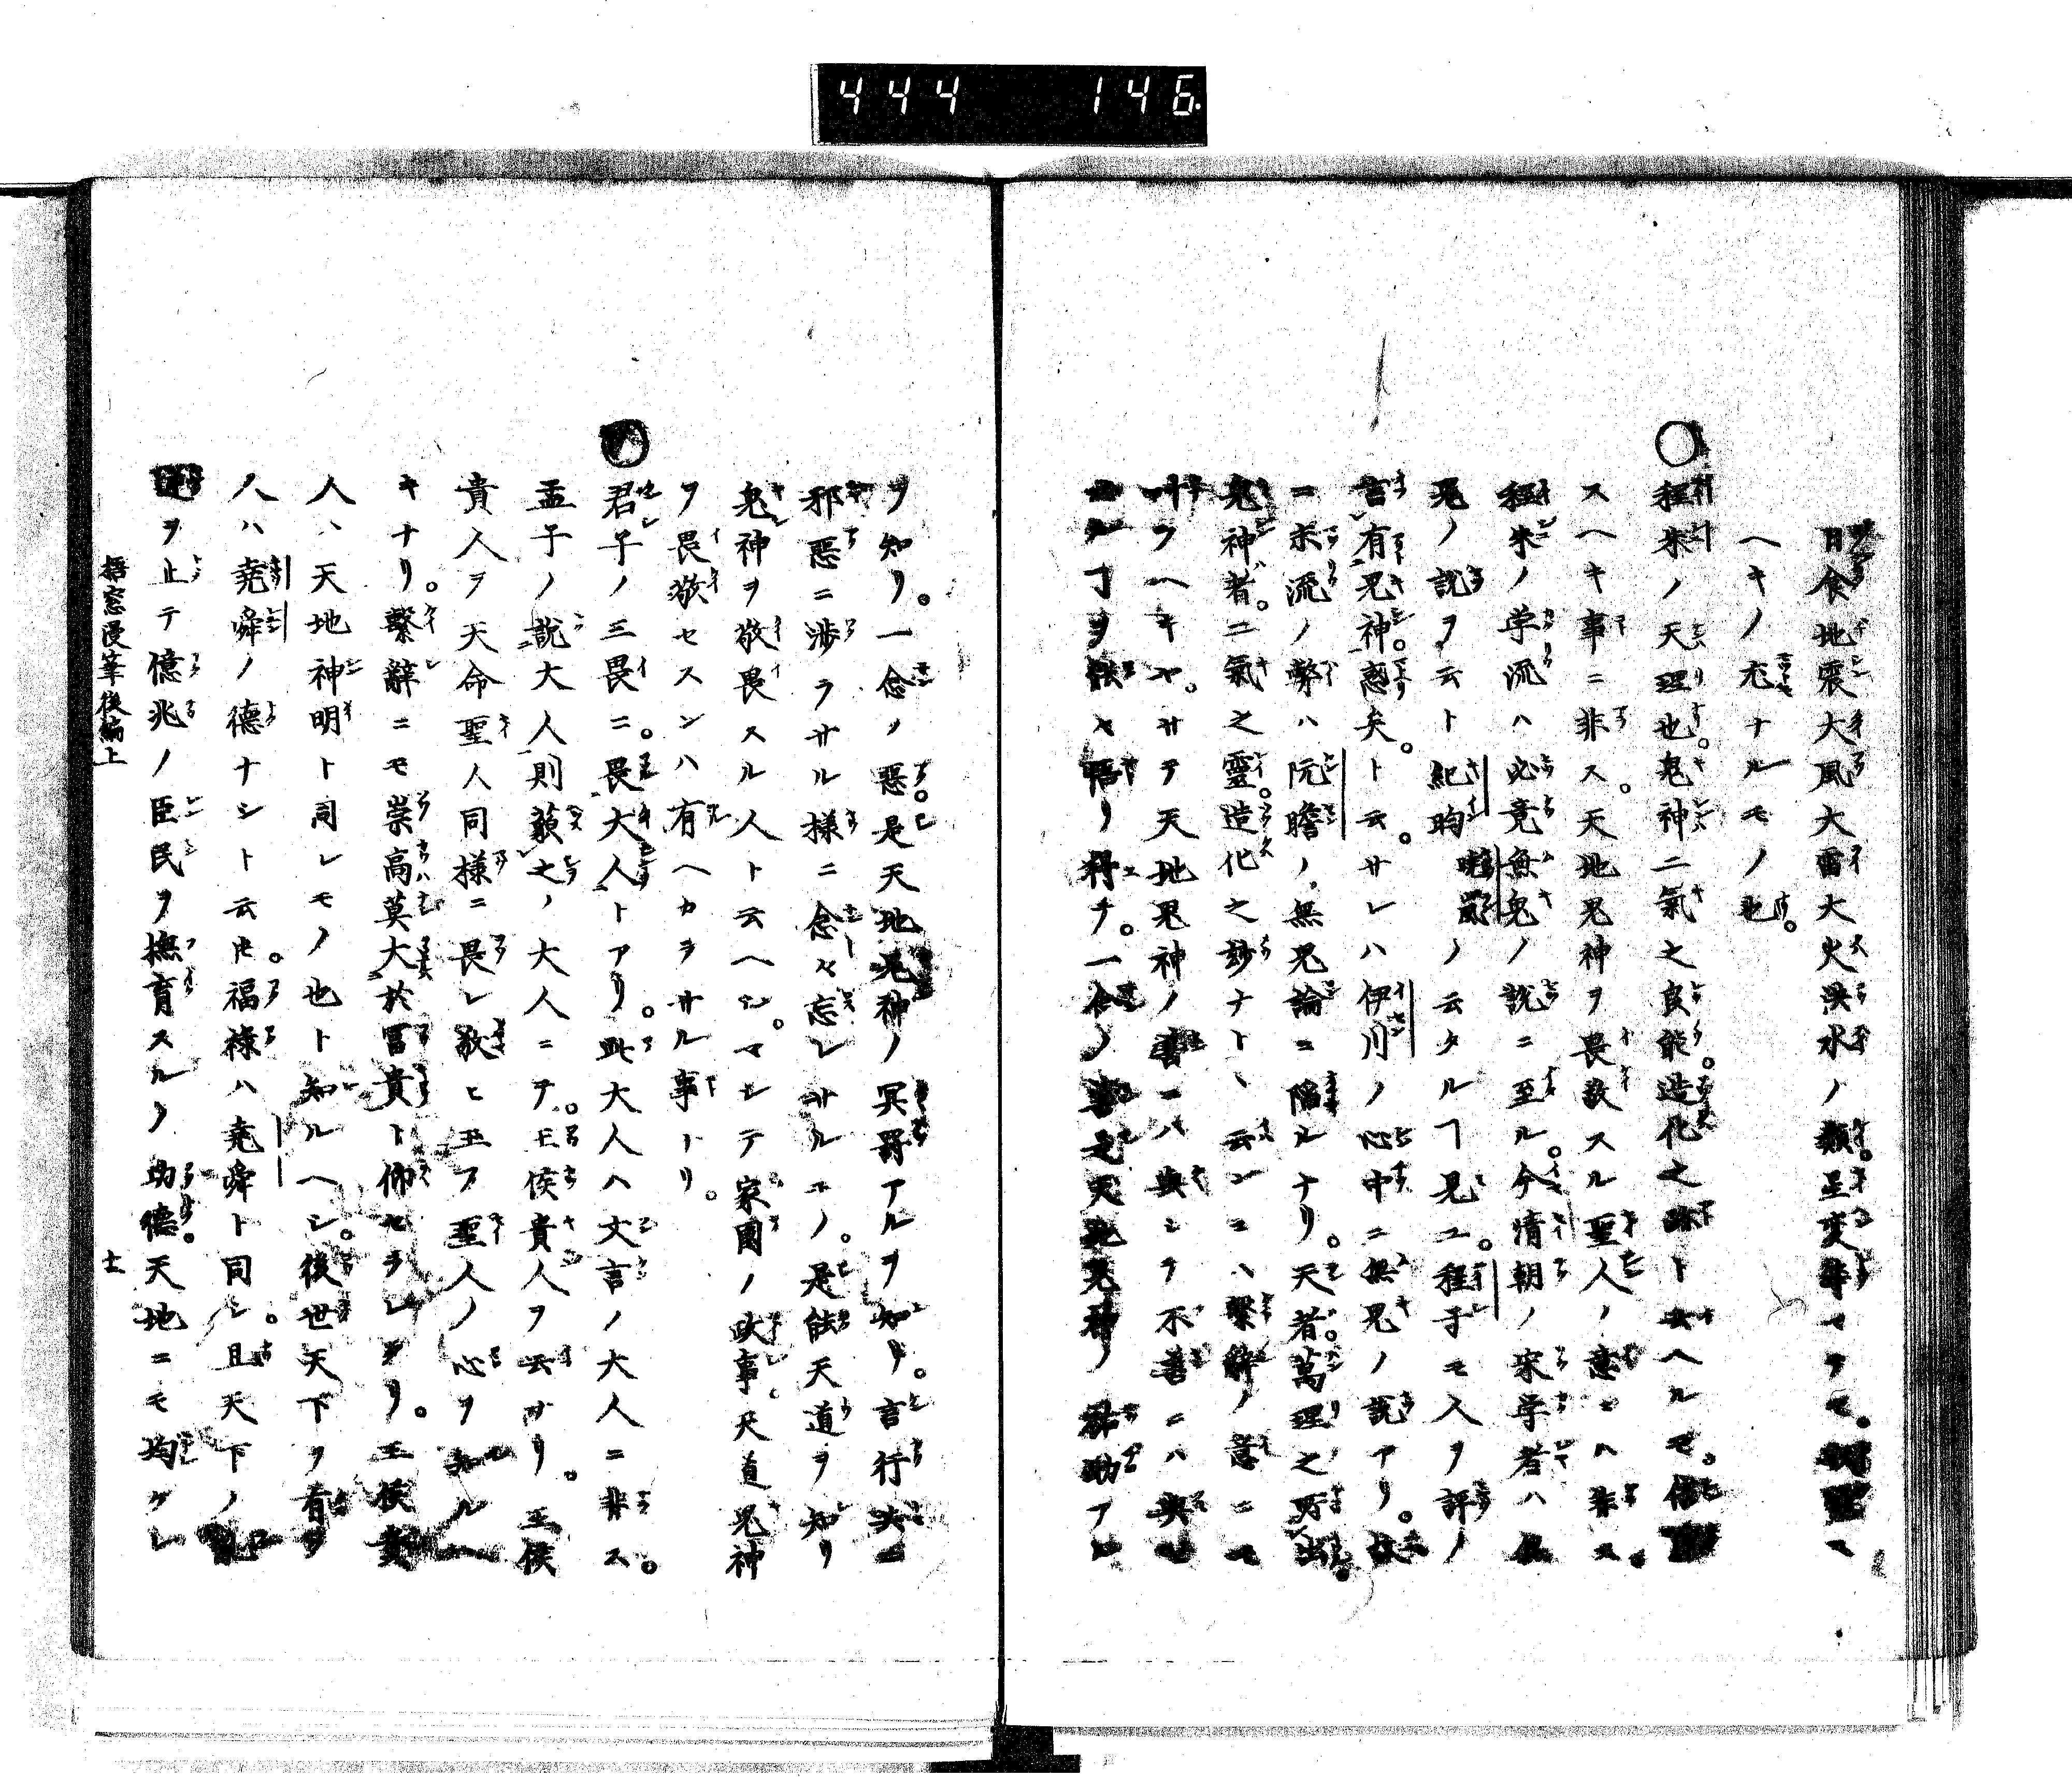 444 146
日食地震大風大雷大火洪水ノ類星変等マテモ
ヘキノ尤ナルモノ也。
○程朱ノ天理也。鬼神二氣之良能。造化之跡ト云ヘルモ。
スヘキ事ニ非ス。天地鬼神ヲ畏敬スル聖人ノ意ニハ非ス。
程朱ノ学流ハ必竟無鬼ノ説ニ至ル。今清朝ノ宋学者ハ
鬼ノ説ヲ云ト紀昀曉嵐ノ云タルヿ見ユ。程子モ入ヲ評ノ
言有鬼神。惑矣。ト云。サレハ伊川ノ心中ニ無鬼ノ説アリ。故
ニ末流ノ弊ハ阮瞻ノ無鬼論ニ陥ルナリ。天者。萬理之所出。
鬼神者。二氣之靈。造化之妙ナトヽ云ンコハ繫辞ノ意ニモ
叶フヘキヤ。サテ天地鬼神ノ善ニハ與シテ不善ニハ與セ
サルヿヲ能ヤ悟リ得テ。一念ノ善是天地鬼神ノ祐助アル
ヲ知リ。一念ノ惡。是天地鬼神ノ冥罸アルヲ知ル。言行决ニ
邪惡ニ渉ラサル様ニ念々忘レサルコノ。是能天道ヲ知リ
鬼神ヲ敬畏スル人ト云ヘシ。マシテ家國ノ政事。天道鬼神
ヲ畏敬セスンハ有ヘカラサル事トリ。
君子ノ三畏ニ。畏大人トアリ。此大人ハ文言ノ大人ニ非ス。
孟子ノ説大人則藐之ノ大人ニテ。王侯貴人ヲ云ナリ。王侯
貴人ヲ天命聖人同様ニ畏レ敬ヒ玉フ聖人ノ心ヲ知ルヘ
キナリ。繫辭ニモ崇高莫大於冨貴ト仰セラレタリ。王侯貴
人ハ天地神明ト同シモノ也ト知ルヘシ。後世天下ヲ有ツ
人ハ堯舜ノ德ナシト云𪜈。福祿ハ堯舜ト同シ。且天下ノ亂
ヲ止テ億兆ノ臣民ヲ撫育スルノ功德。天地ニモ均ケレ
梧窓漫筆後編上 十一